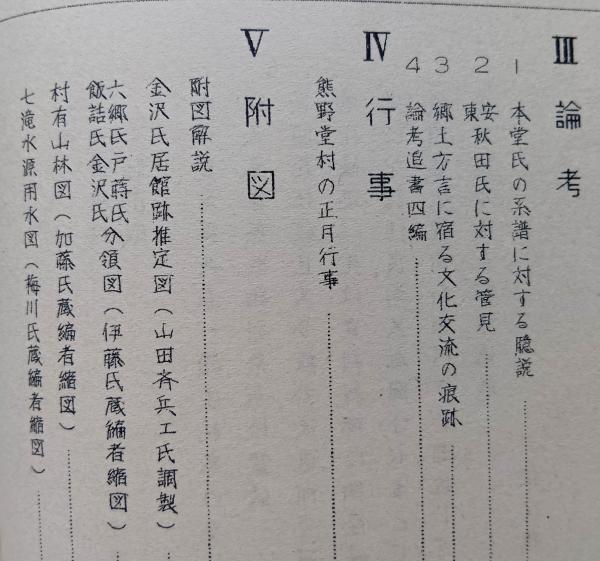 III 論考
1 本堂氏の系譜に対する臆説
2 安東秋田氏に対する管見
3 郷土方言に宿る文化交流の痕跡
4 論考追書四編
IV 行事
熊野堂村の正月行事
V 附図
附図解説
金沢氏居館跡推定図(山田斉兵エ氏調製)
六郷氏戸蒔氏飯詰氏金沢氏分領図(伊藤氏蔵編者縮図)
村有山林図(加藤氏蔵編者縮図)
七滝水源用水図(梅川氏蔵編者縮図)